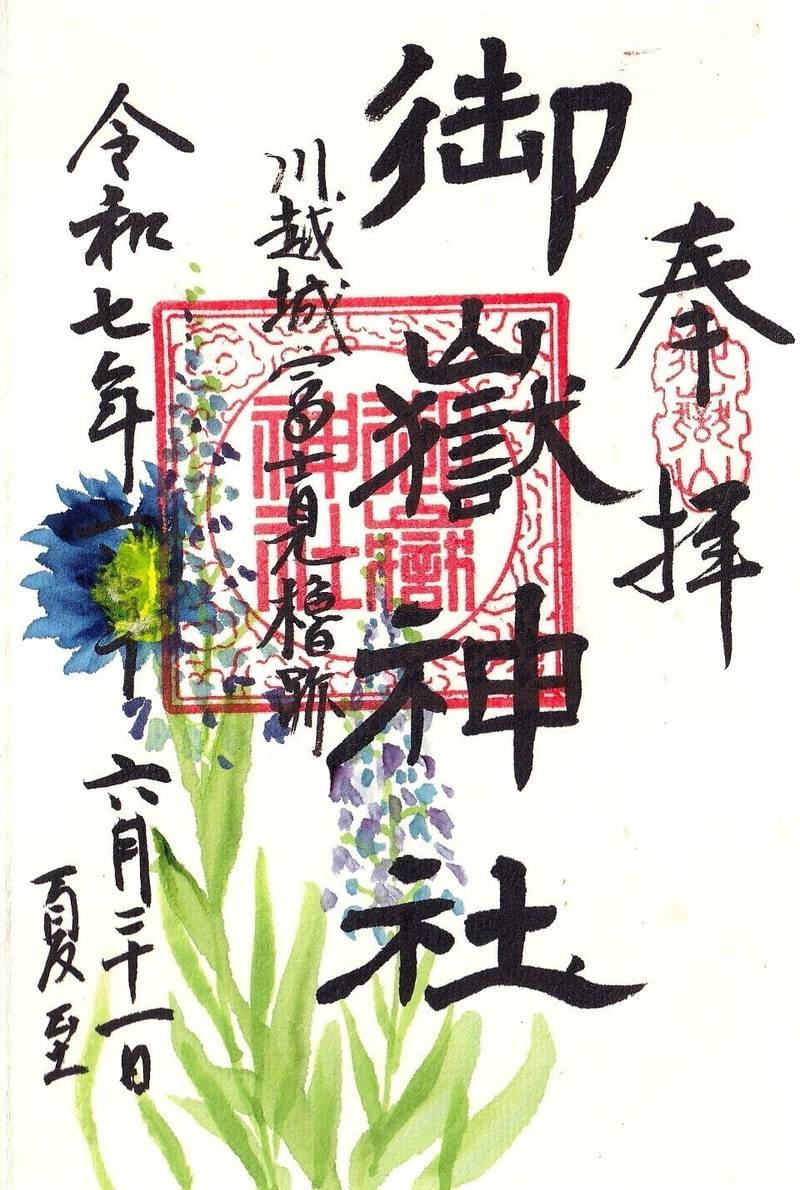 奉拝
御嶽山
御嶽神社
御嶽神社
川越城富士見櫓跡
令和七年
六月二十一日
夏至